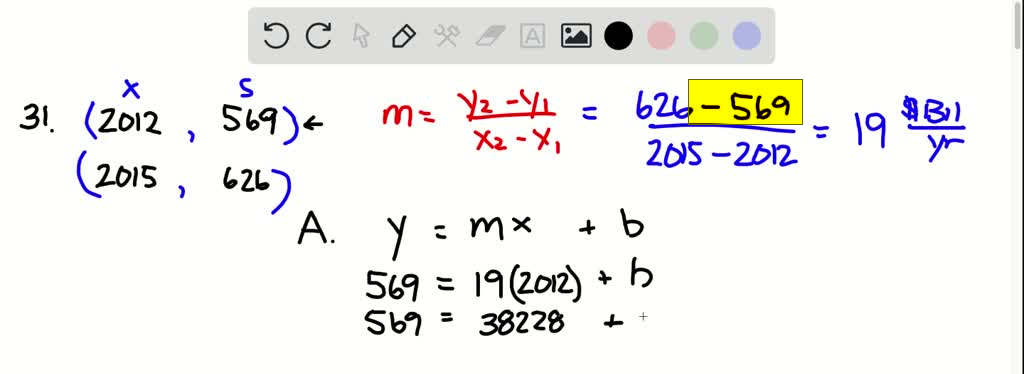 x s
31. (2012 , 569) ← m = y₂ - y₁ / x₂ - x₁ = 626 - 569 / 2015 - 2012 = 19 $Bil / yr
(2015 , 626)
A. y = mx + b
569 = 19(2012) + b
569 = 38228 +